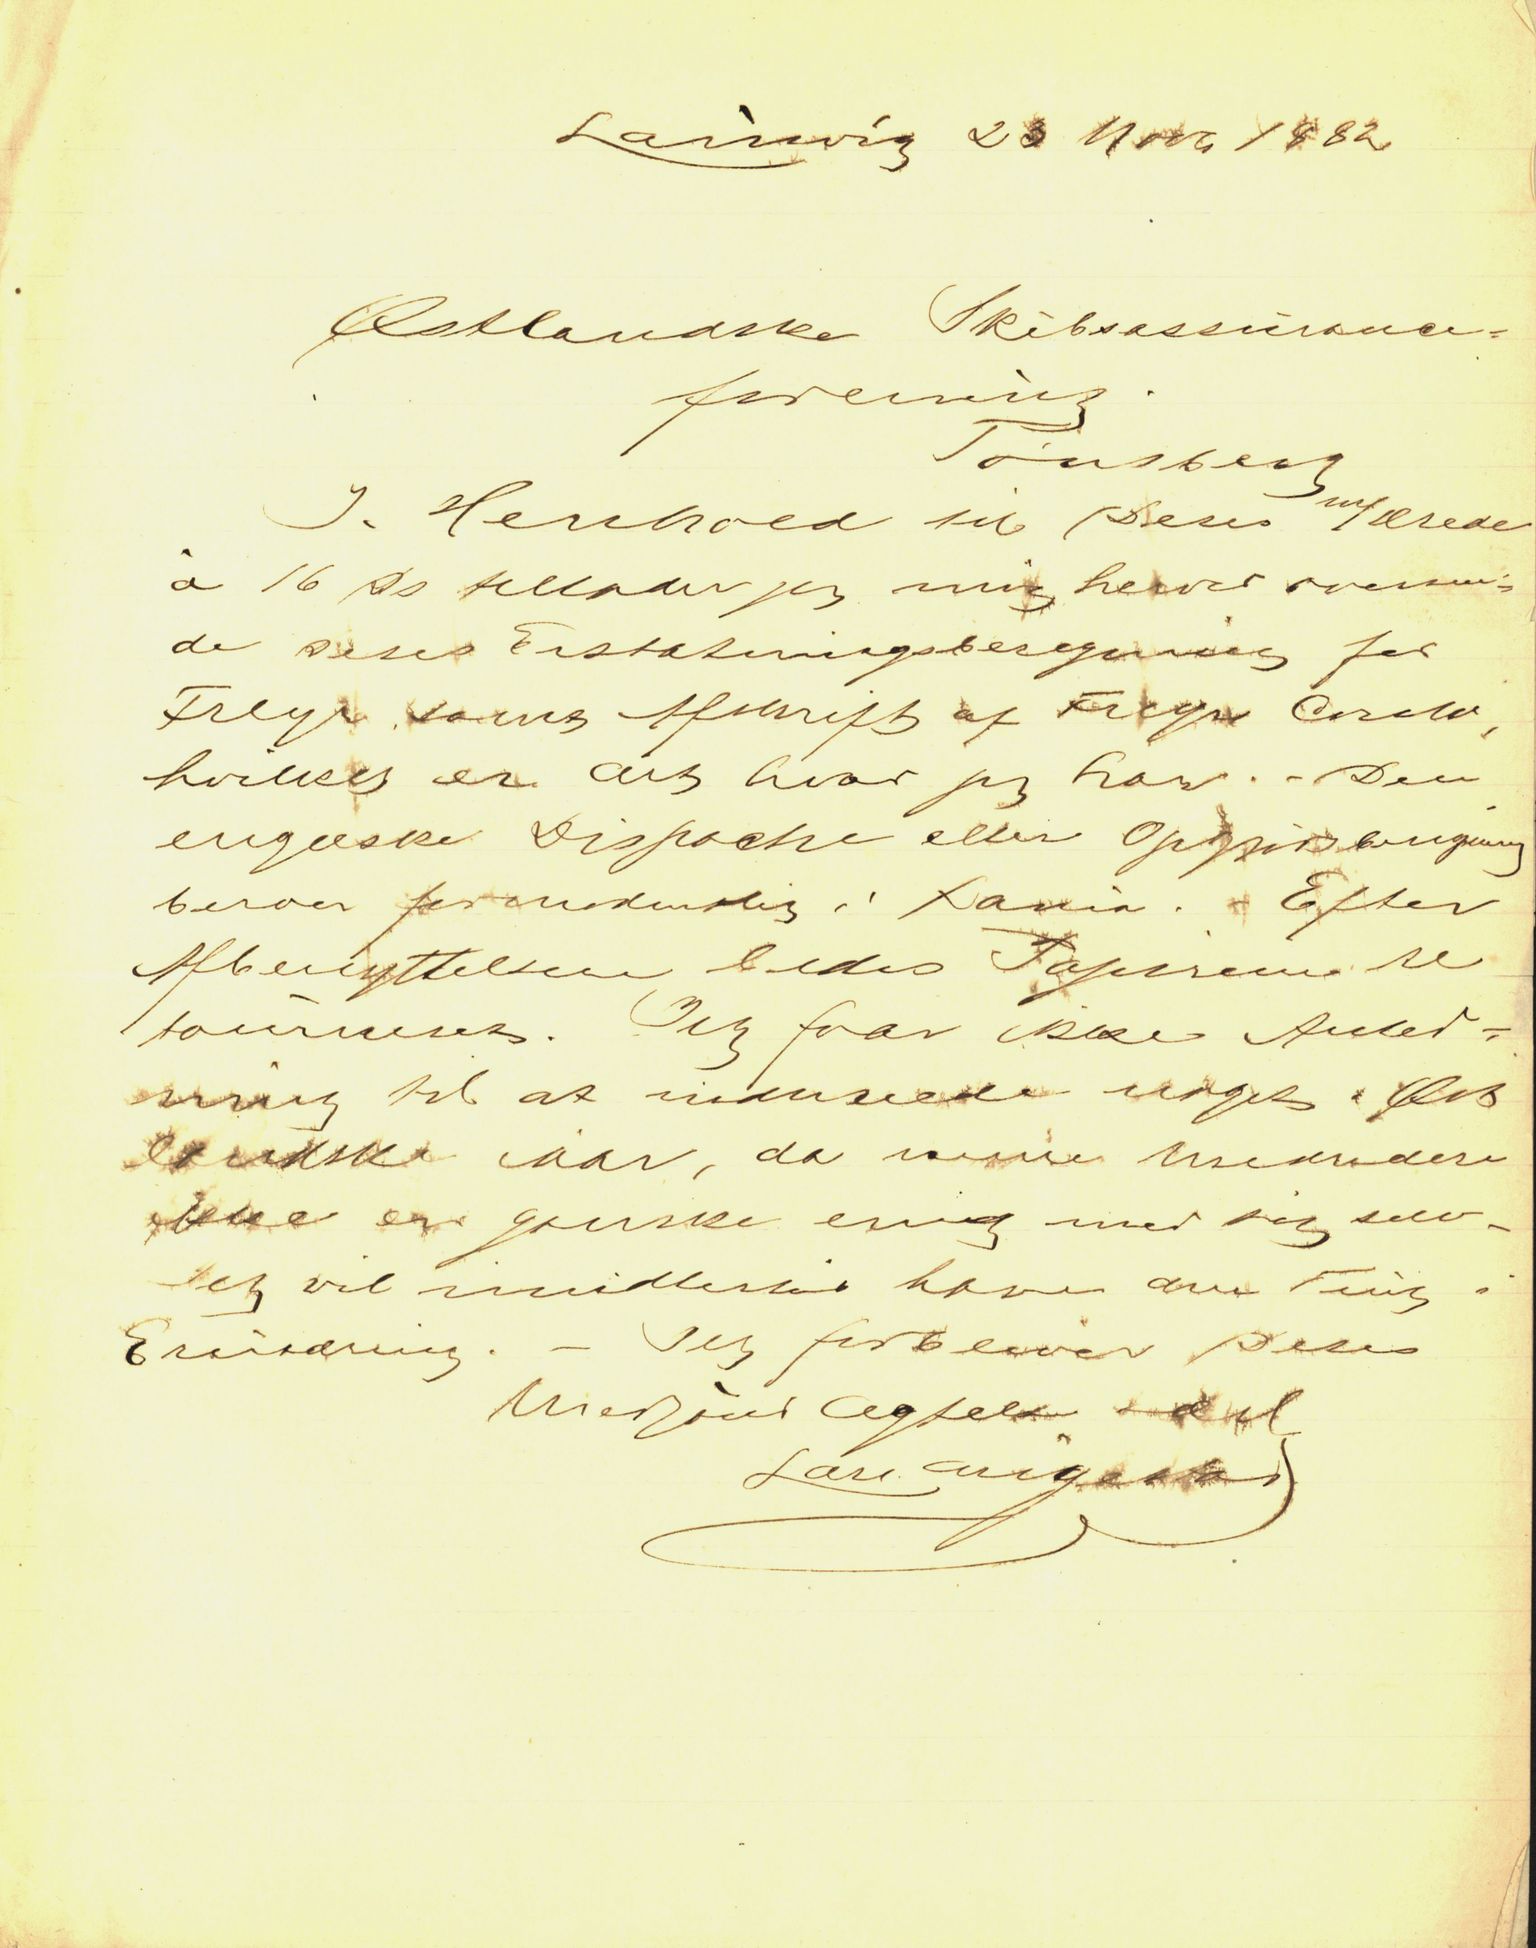 Laurvig 23 Novb 1882
Østlandske Skibsassurance=
forening.
Tønsberg
I. Henhold til Deres m/ Ærede
à 16 Ds tillader jeg mig herved oversen=
de deres Erstatningsberegning for
Freyr samt Afskrift af Freyrs Conto,
hvilket er alt hvad jeg har. - Den
engelske Dispache eller beregning
beroer formodentlig i Xania. - Efter
Afbenyttelsen bedes Papirerne re
tourneret. Jeg faar ikke Anled=
ning til at indmelde noget i Øst
landske iaar, da mine Medredere
ikke er ganske enig med sig selv -
Jeg vil imidlertid have den Ting i
Erindring. - Jeg forbliver Deres
Med Agtelse
Lars